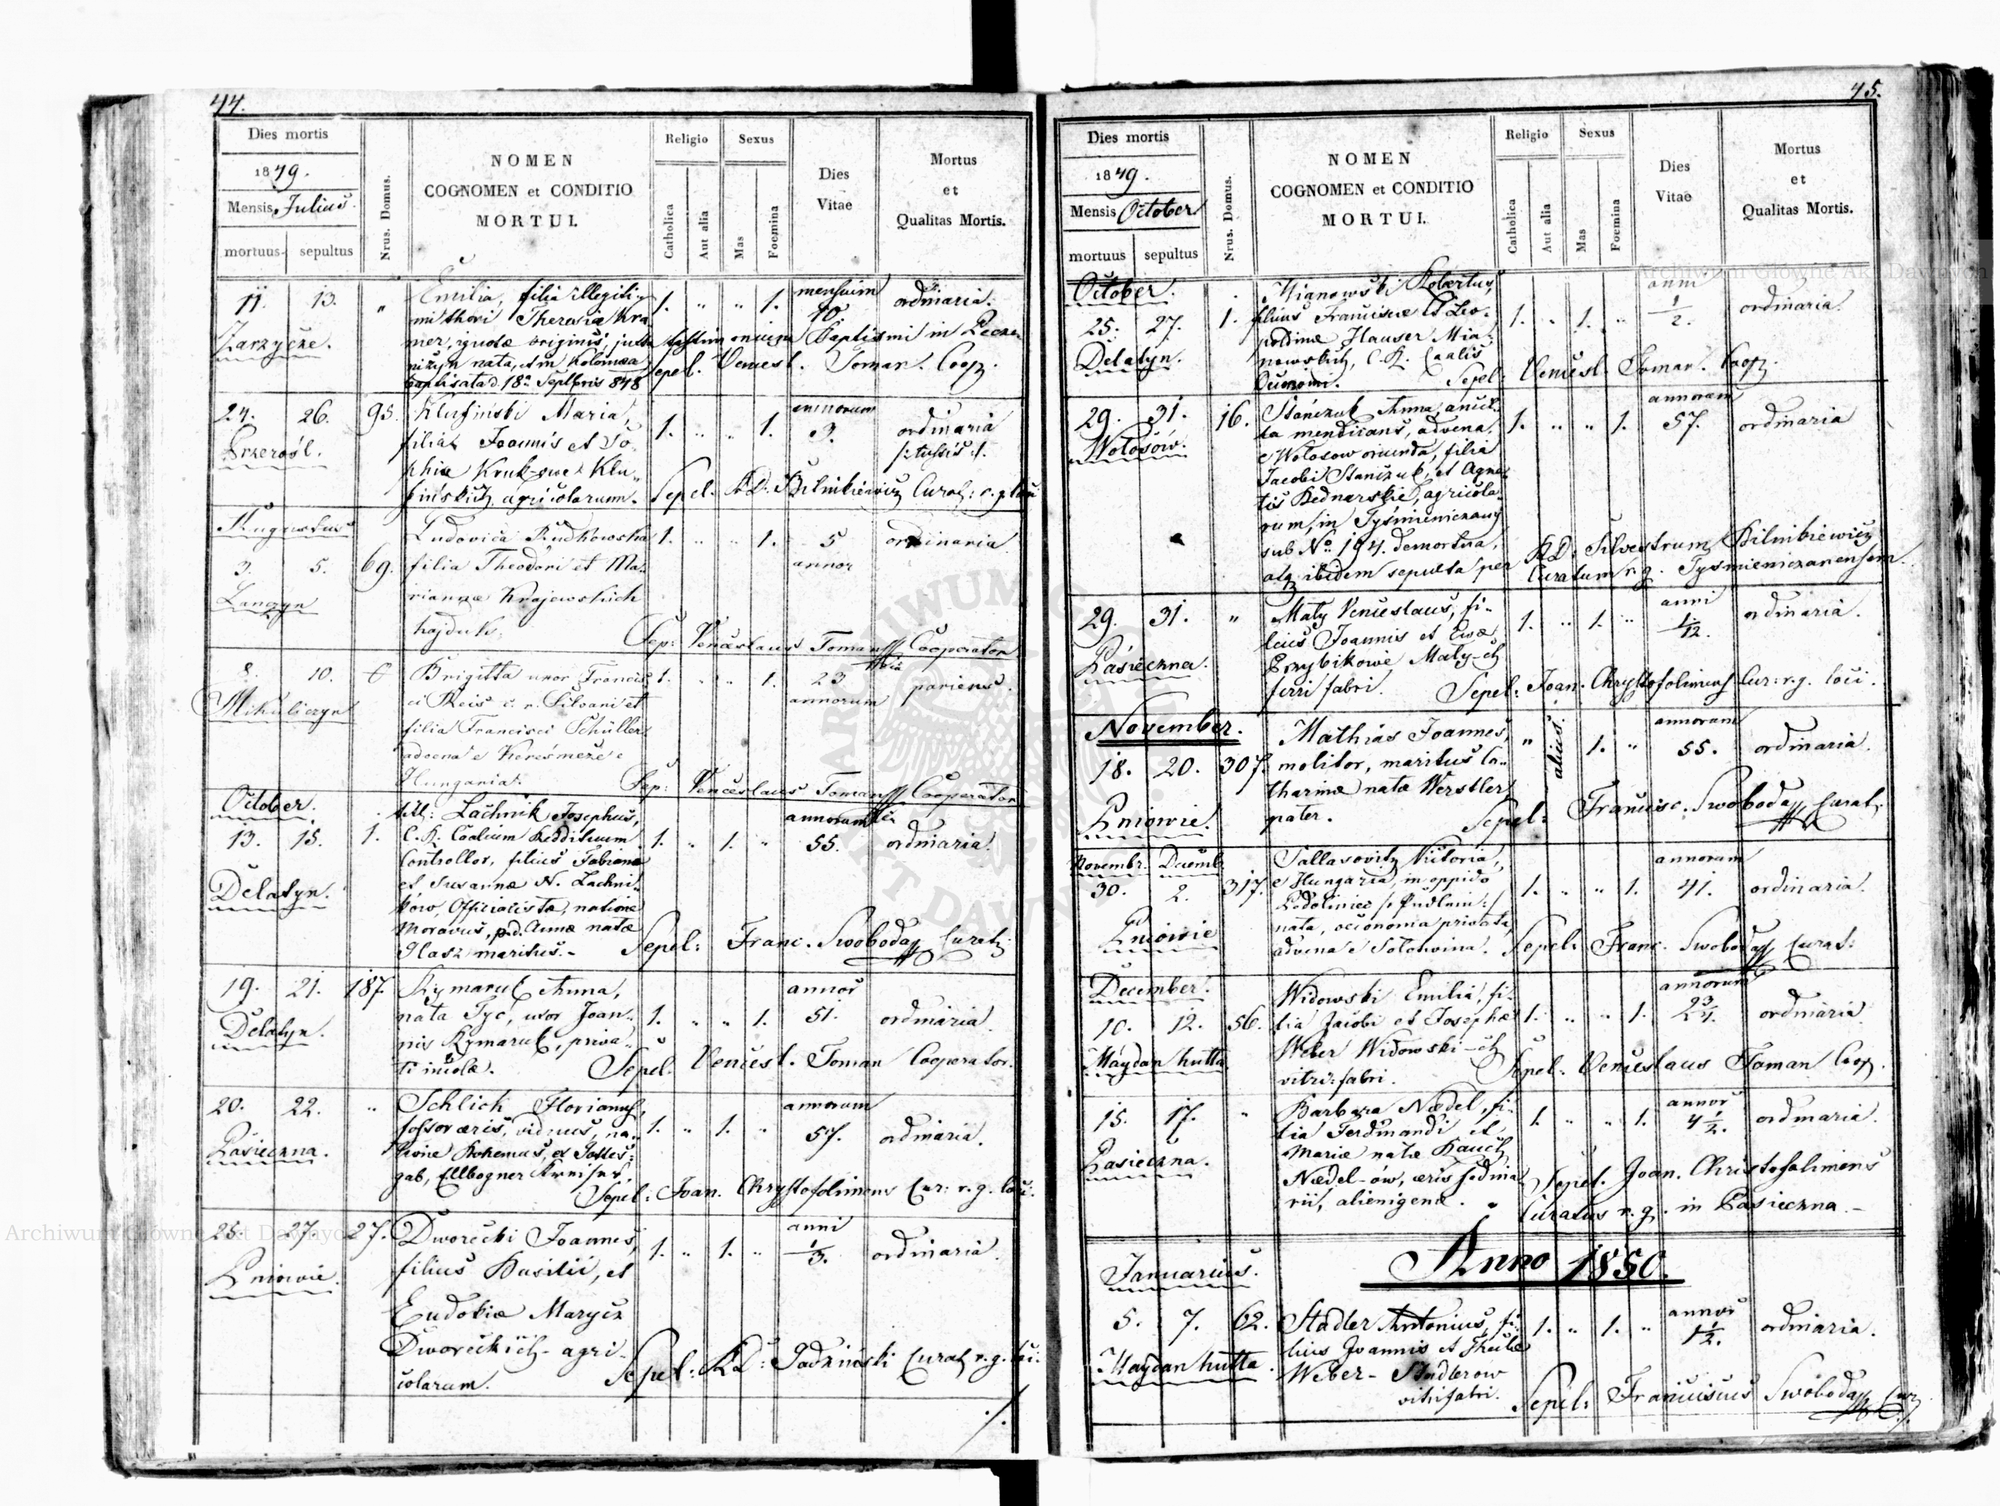 44.
Dies mortis
1849.
Mensis Julius.
mortuus
sepultus
Nrus. Domus.
NOMEN
COGNOMEN et CONDITIO
MORTUI.
Religio
Catholica
Aut alia
Sexus
Mas
Foemina
Dies
Vitae
Mortus
et
Qualitas Mortis.
11. 13. "
Zarzycze.
Emilia, filia illegiti-
mi thori Theresiæ Kra
mer, ignotæ originis, juxta testimonium Baptismi in Pecze-
niżyn nata, et in Kolomæa
baptisata d. 18a Septbris 848
1. " " 1.
mensium
10.
ordinaria.
Sepel. Vencesl. Toman. Coop.
24. 26. 95.
Przerośl.
Klusiński Maria,
filia Joannis et So
phiæ Kruk-
sińskich agricolarum.
1. " " 1.
annorum
3.
ordinaria
Sepel. RD. Bilinkiewicz Curat: r. g. loci
Augustus
3. 5. 69.
Lanczyn
Ludovica Rudkowska
filia Theodori et Ma-
riannæ Krajewskich
hajduk.
1. " " 1.
5
annor
ordinaria
Sep: Venceslaus Toman Cooperator
8. 10.
Mikuliczyn
Brigitta uxor Francis
ci Reis c. r. Silvani et
filia Francisci Schüller
advena e Kőrösmező e
Hungaria.
1. " " 1.
23
annorum
pariens.
Sep: Venceslaus Toman Cooperator
October.
13. 15. 1.
Delatyn.
tit: Lachnik Josephus,
C. R. Caalium Reddituum
Controllor, filius Fabiani
et Susannæ N. Lachni-
ków, Officialista, natione
Moravus, p.d. Annæ natæ
Glasz maritus.-
1. " 1. "
annorum
55.
ordinaria.
Sepel: Franc. Swoboda Curat:
19. 21. 187.
Delatyn.
Rymaruk Anna,
nata Tyc, uxor Joan-
nis Rymaruk, priva-
ti incolæ.
1. " " 1.
annor
51.
ordinaria.
Sepel. Vencesl. Toman Cooperator.
20. 22. "
Pasieczna.
Schlich Florianus,
fossor æris, viduus, na-
tione Bohemus, ex Josses-
gab, Ellbogner Kreises,
1. " 1. "
annorum
57.
ordinaria.
Sepel: Joan. Chrystofolimens Cur: r. g. loci.
25. 27. 27.
Pniowie.
Dworecki Joannes,
filius Basilii, et
Eudokiæ Marycz
Dworeckich- agri-
colarum.
1. " 1. "
anni
1/3.
ordinaria.
Sepel: RD: Curat r. g. loci.
./.
45.
Dies mortis
1849.
Mensis October
mortuus
sepultus
Nrus. Domus.
NOMEN
COGNOMEN et CONDITIO
MORTUI.
Religio
Catholica
Aut alia
Sexus
Mas
Foemina
Dies
Vitae
Mortus
et
Qualitas Mortis.
October.
25. 27. 1.
Delatyn.
Mianowski Robertus,
filius Francisci et Leo-
poldinæ Hauser Mia-
nowskich, C. R. Caalis
Oeconomi.
1. " 1. "
anni
1/2.
ordinaria.
Sepel: Vencesl. Toman. Coop.
29. 31. 16.
Wołosow.
Stańczuk Anna, ancil-
la mendicans, advena
e Wołosow oriunda, filia
Jacobi Stańczuk, et Agne-
tis Bednarskie, agricola-
rum, in Tyśmieniczany
sub No 194. demortua,
atq ibidem sepulta per RD: Silvestrum Bilinkiewicz
Curatum r. g. Tyśmieniczanensem.
1. " " 1.
annorum
57.
ordinaria
29. 31. "
Pasieczna.
Mały Venceslaus, fi-
lius Joannis et Evæ
Przybikowie Mały-ch
ferri fabri.
1. " 1. "
anni
1/12.
ordinaria.
Sepel: Joan. Chrystofolimens Cur: r. g. loci.
November.
18. 20. 307.
Pniowie.
Mathias Joannes,
molitor, maritus Ca-
tharinæ natæ Werstler
pater.
" alius. 1. "
annorum
55.
ordinaria.
Sepel: Francisc. Swoboda Curat:
Novembr. Decemb.
30. 2. 317.
Pniowie
Sallasovits Victoria,
e Hungaria, in oppido
Podoliniec /: Pudlein :/
nata, oeconoma privata
advena e Sołotwina.
1. " " 1.
annorum
41.
ordinaria.
Sepel: Franc. Swoboda Curat:
December.
10. 12. 56.
Maydan hutta
Widowski Emilia, fi-
lia Jacobi et Josephæ
Weber Widowski-ch
vitri-fabri.
1. " " 1.
annorum
2 3/4.
ordinaria
Sepel: Venceslaus Toman Coop.
15. 17. "
Pasieczna.
Barbara Nædel, fi-
lia Ferdinandi et
Mariæ natæ Rauch
Nædel-ów, æris fodina
rii, alienigenæ.
1. " " 1.
annor
4 1/2.
ordinaria.
Sepel. Joan. Christofolimens
Curatus r. g. in Pasieczna.-
Anno 1850.
Januarius.
5. 7. 62.
Maydan hutta.
Stadler Antonius, fi-
lius Joannis et Theclæ
Weber- Stadlerow
vitrifabri.
1. " 1. "
annor
1 1/2.
ordinaria.
Sepel: Franciscus Swoboda Cur.
Archiwum Główne Akt Dawnych
ARCHIWUM GŁÓWNE AKT DAWNYCH
Archiwum Główne Akt Dawnych